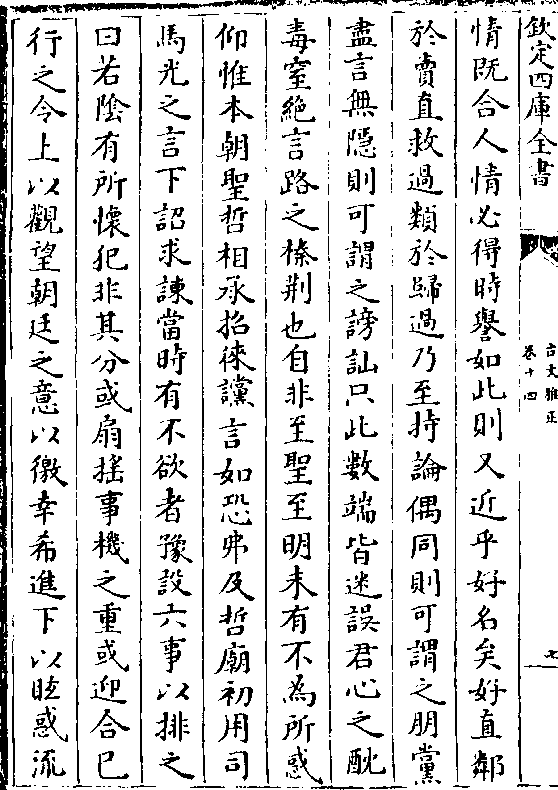 欽定四庫全書
古文雅正
卷十四
七
情既合人情必得時譽如此則又近乎好名矣好直鄰
於賣直救過類於歸過乃至持論偶同則可謂之朋黨
盡言無隱則可謂之謗訕只此數端皆迷誤君心之酖
毒窒絶言路之榛荆也自非至聖至明未有不為所惑
仰惟本朝聖哲相承招徠讜言如恐弗及哲廟初用司
馬光之言下詔求諫當時有不欲者豫設六事以排之
曰若隂有所懷犯非其分或扇揺事機之重或迎合已
行之令上以觀望朝廷之意以徼幸希進下以眩惑流